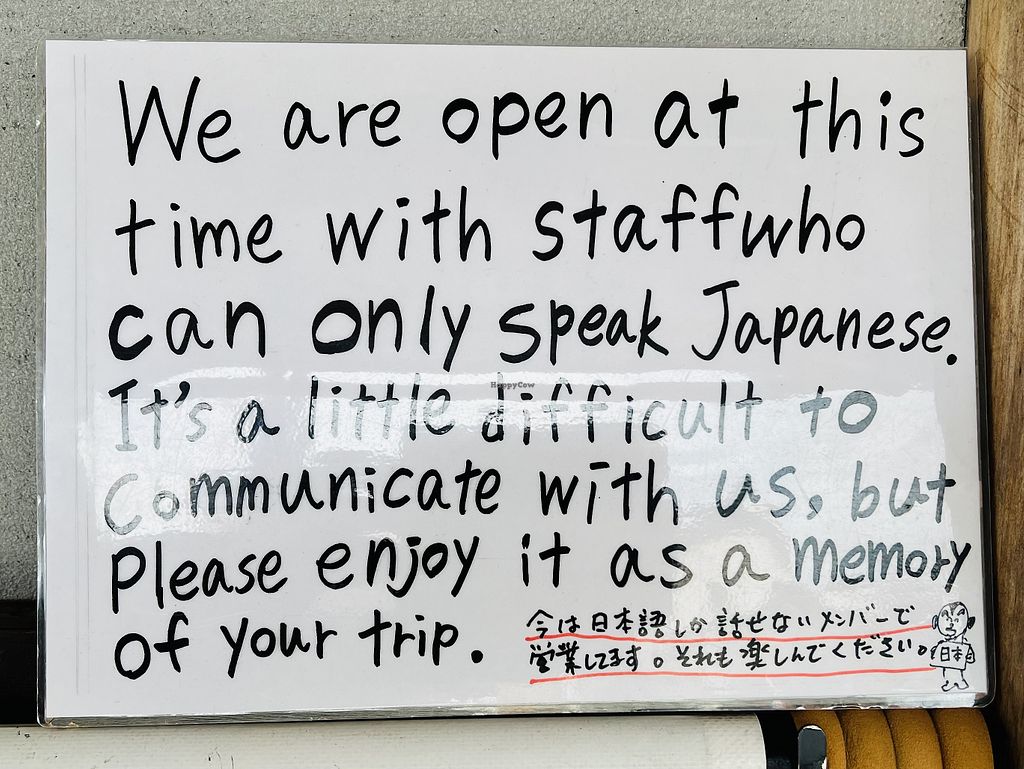 We are open at this
time with staffwho
can only speak Japanese.
HappyCow
It's a little difficult to
Communicate with us, but
Please enjoy it as a memory
of your trip.
今は日本語しか話せないメンバーで
営業してます。それも楽しんでください。
日本